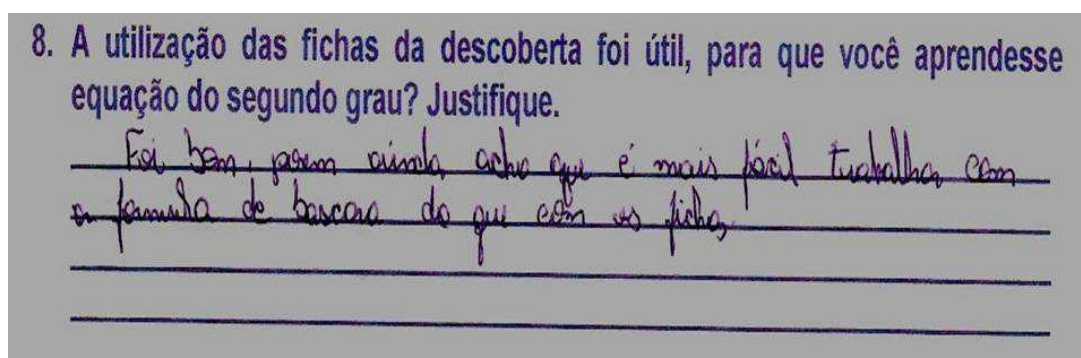 8. A utilização das fichas da descoberta foi útil, para que você aprendesse
equação do segundo grau? Justifique.
Foi bem, porem ainda acho que é mais fácil trabalha com
a formula de bascara do que com as fichas